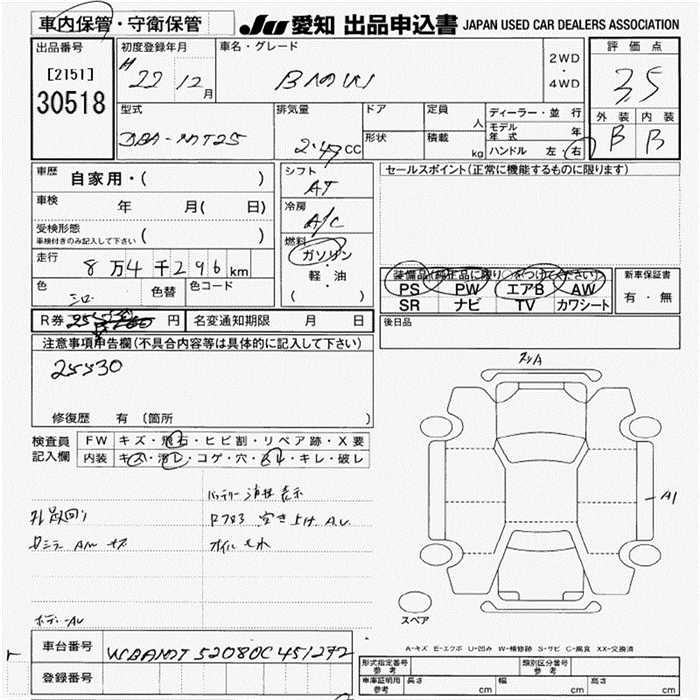 車内保管・守衛保管 JU 愛知 出品申込書 JAPAN USED CAR DEALERS ASSOCIATION
出品番号 初度登録年月 車名・グレード 2WD・4WD 評価点
[2151] H 22 12月 BMW 3.5
30518
型式 排気量 ドア 定員 人 ディーラー・並行 外装 内装
DBA-NT25 2.47CC 形状 積載 kg モデル年式 年 B B
ハンドル 左・右
車歴 自家用・( ) シフト AT セールスポイント(正常に機能するものに限ります)
車検 年 月( 日) 冷房 A/C
受検形態 車検付きのみ記入して下さい ( ) 燃料 ガソリン・軽・油 ( )
走行 8万4千296km
装備品(純正品に限り○をつけてください) 新車保証書
色 シロ 色替 色コード PS PW エアB AW 有・無
SR ナビ TV カワシート
R券 円 名変通知期限 月 日 後日品
注意事項申告欄(不具合内容等は具体的に記入して下さい)
25530
修復歴 有 (箇所 )
検査員記入欄 FW キズ・飛石・ヒビ割・リペア跡・X要
内装 キズ・汚レ・コゲ・穴・スレ・キレ・破レ
A1
スペア
A-キズ E-エクボ U-凹み W-補修跡 S-サビ C-腐食 XX-交換済
車台番号 WBANT52080C451272
登録番号
形式指定番号 参考 類別区分番号 参考
車庫証明用 参考 長さ cm 幅 cm 高さ cm